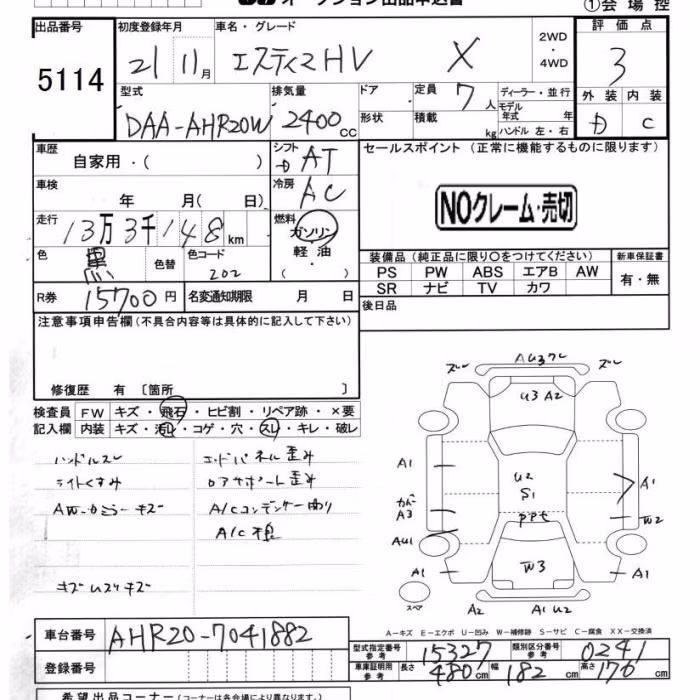 オークション出品申込書
①会場控
出品番号 初度登録年月 車名・グレード 2WD・4WD 評価点
5114 21 11月 エスティマHV X 3
型式 排気量 ドア 定員 7人 ディーラー・並行 外装 内装
DAA-AHR20W 2400cc 形状 積載 kg モデル年式 年 ハンドル 左・右 D C
車歴 シフト セールスポイント(正常に機能するものに限ります)
自家用・( ) D AT
車検 冷房
年 月(日) AC
NOクレーム・売切
走行 燃料
13万3千148km ガソリン
軽油・( )
色 黒 色替 色コード 202
装備品(純正品に限り○をつけてください) 新車保証書
PS PW ABS エアB AW 有・無
SR ナビ TV カワ
R券 15700円 名変通知期限 月 日
後日品
注意事項申告欄(不具合内容等は具体的に記入して下さい)
修復歴 有 〔箇所 〕
検査員 FW キズ・飛石・ヒビ割・リペア跡・×要
記入欄 内装 キズ・汚レ・コゲ・穴・スレ・キレ・破レ
ハンドルスレ エンドパネル歪み
ライトくすみ コアサポート歪み
AW・カミラーキズ A/Cコンデンサー曲り
A/C不良
キズUスリキズ
ズレ AU3ワレ ズレ
U3 A2
A1
U2
S1
A1
カドA3
PPt
W2
AU1
W3
A1 A1
スペア A2 A1 U2
A-キズ E-エクボ U-凹み W-補修跡 S-サビ C-腐食 XX-交換済
車台番号 AHR20-7041882
型式指定番号 参考 15327 類別区分番号 参考 0241
登録番号
車庫証明用 参考 長さ 480cm 幅 182cm 高さ 176cm
希望出品コーナー(コーナーは各会場により異なります。)